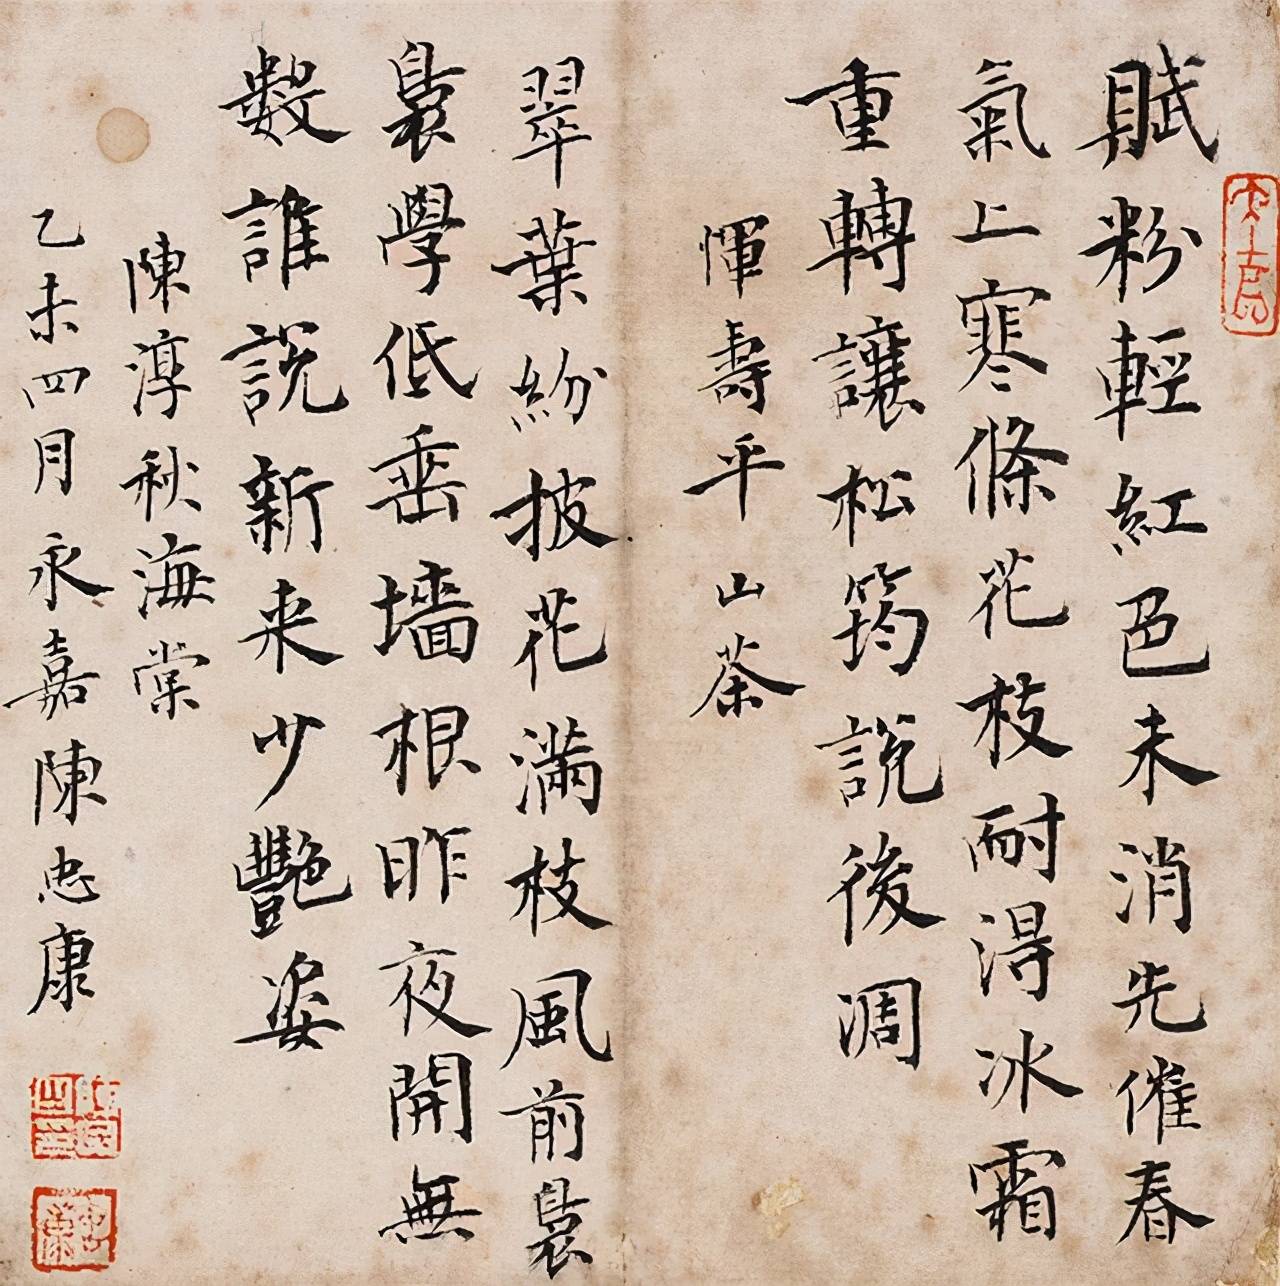 賦粉輕紅色未消先催春
氣上寒條花枝耐得冰霜
重轉讓松筠説後凋
惲壽平山茶
翠葉紛披花滿枝風前裊
裊學低垂墻根昨夜開無
數誰説新来少艷姿
陳淳秋海棠
乙未四月永嘉陳忠康